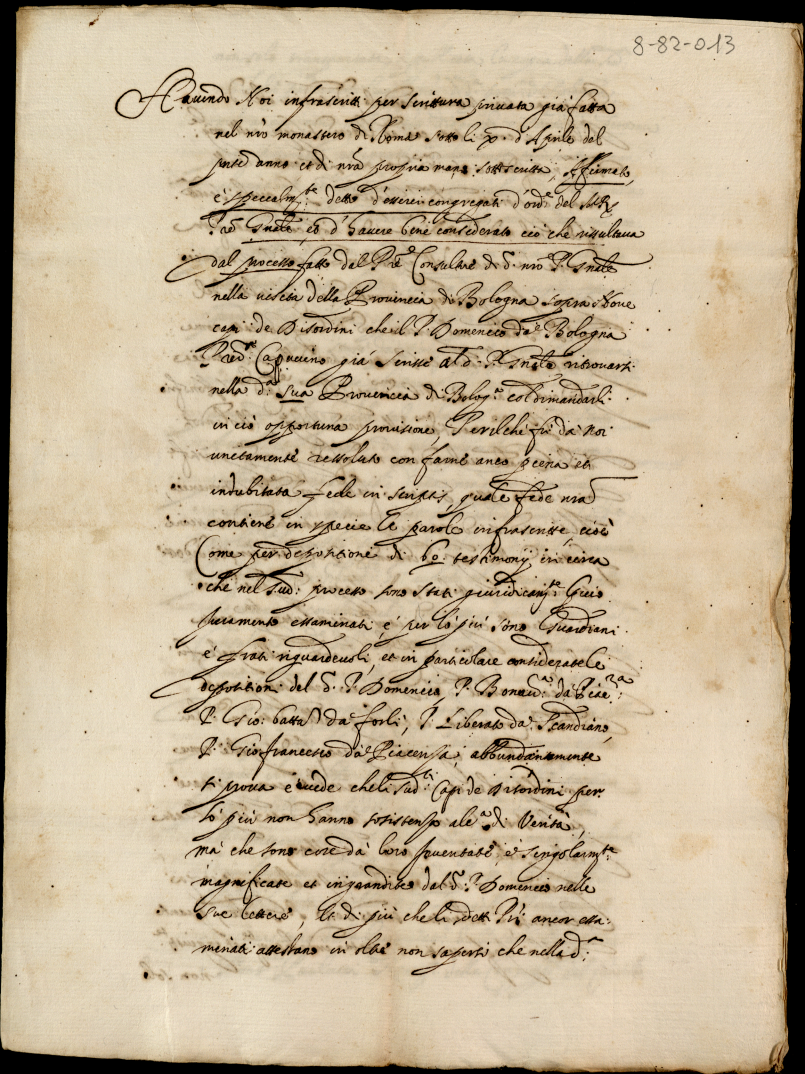 8-82-013
Havendo Noi infrascritti per scrittura privata già fatta
nel nro monastero di Roma sotto li x. d'Aprile del
pnte anno et di nrã propria mano sottoscritta, Affirmato,
è specealmte detto d'esserci congregati d'orde del
Pre Gnãle, et d'havere bene considerato ciò che risultava
dal processo fatto dal Pre Consultre di d. nro P. Gnãle
nella visita della Provincia di Bologna sopra Nove
capi de Disordini che il P. Domenico da Bologna
Predre Capuccino già scrisse al d. P. Gnãle ritrovarsi
nella da sua Provincia di Bologa col dimandarli
in ciò opportuna provisione, Perilche fù da noi
unitamente ressoluto con farne anco piena et
indubitata fede in scriptis quale fede nrã
contiene in specie le parole infrascritte, cioè
Come per depositione di 60 testimonij in circa
che nel sud: processo sono stati giuridicamte
juramento essaminati, è per lo più sono Guardiani
è frati riguardevoli, et in particolare considerate le
depositioni del d. P. Domenico, P. Bonavra da Piaca
P. Gio: batta da forlì, P. Liberato da Scandiano,
P. Giofrancesco da Piacenza, abbundantemente
si prova è vede che li sudti Capi de Disordini per
lo più non hanno sosistenza alca di Verità,
mà che sono cose da loro inventate, è singolarmte
magnificate et ingrandite dal d. P. Domenico nelle
sue lettere, Et di più che li detti Pri ancor essa:
minati attestano in oltre non sapersi che nella da